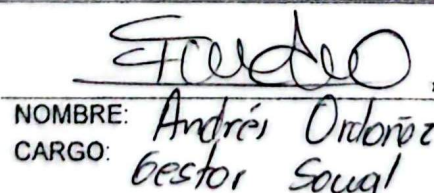 NOMBRE: Andrés Ordoñez
CARGO: Gestor Social